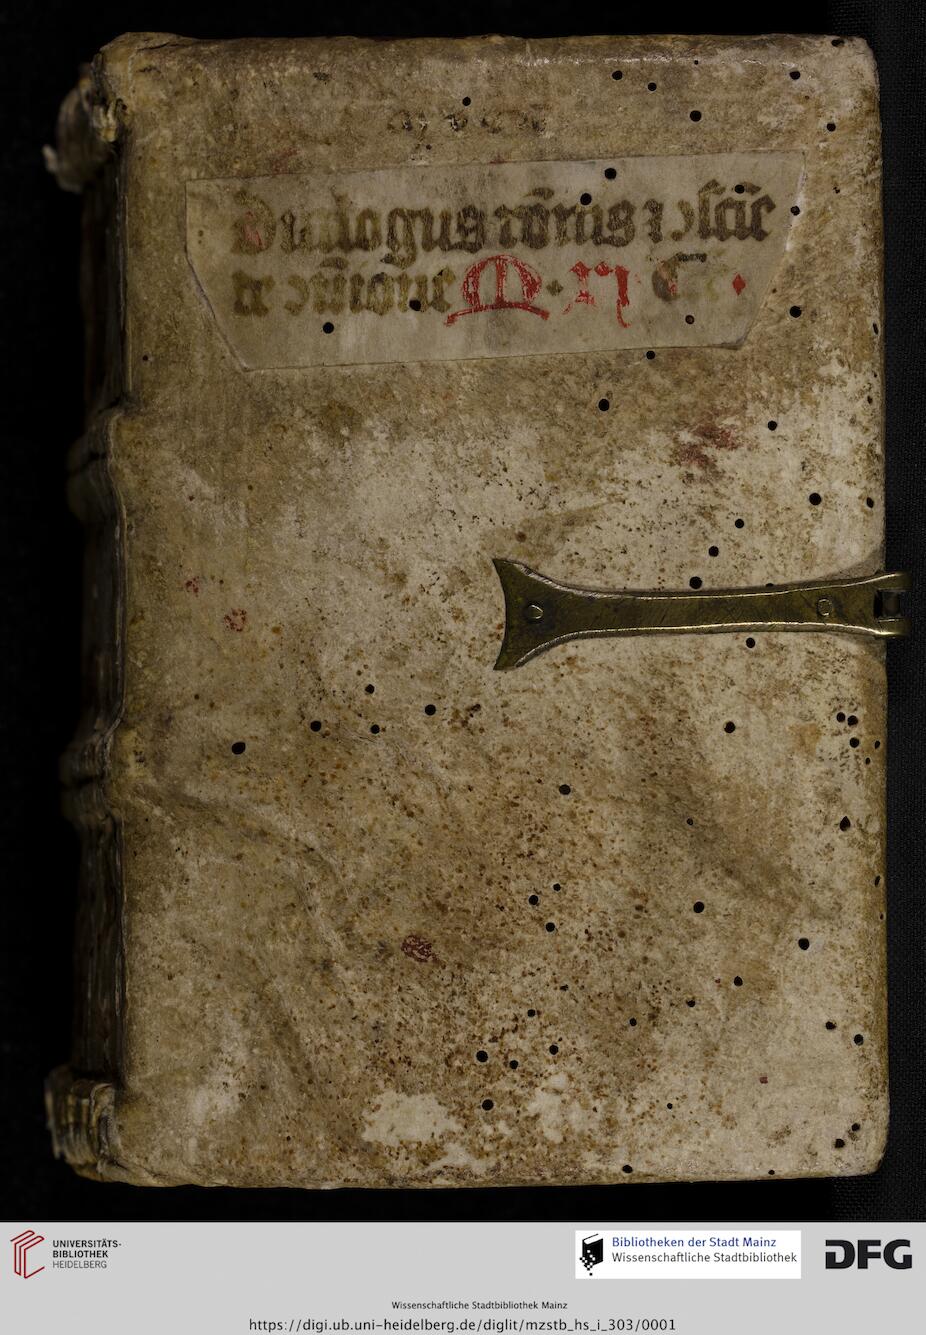 Dyalogus rōnis ⁊ ꝯsciē
de ꝯmūione M · XI C
UNIVERSITÄTS-
BIBLIOTHEK
HEIDELBERG
Bibliotheken der Stadt Mainz
Wissenschaftliche Stadtbibliothek
DFG
Wissenschaftliche Stadtbibliothek Mainz
https://digi.ub.uni-heidelberg.de/diglit/mzstb_hs_i_303/0001